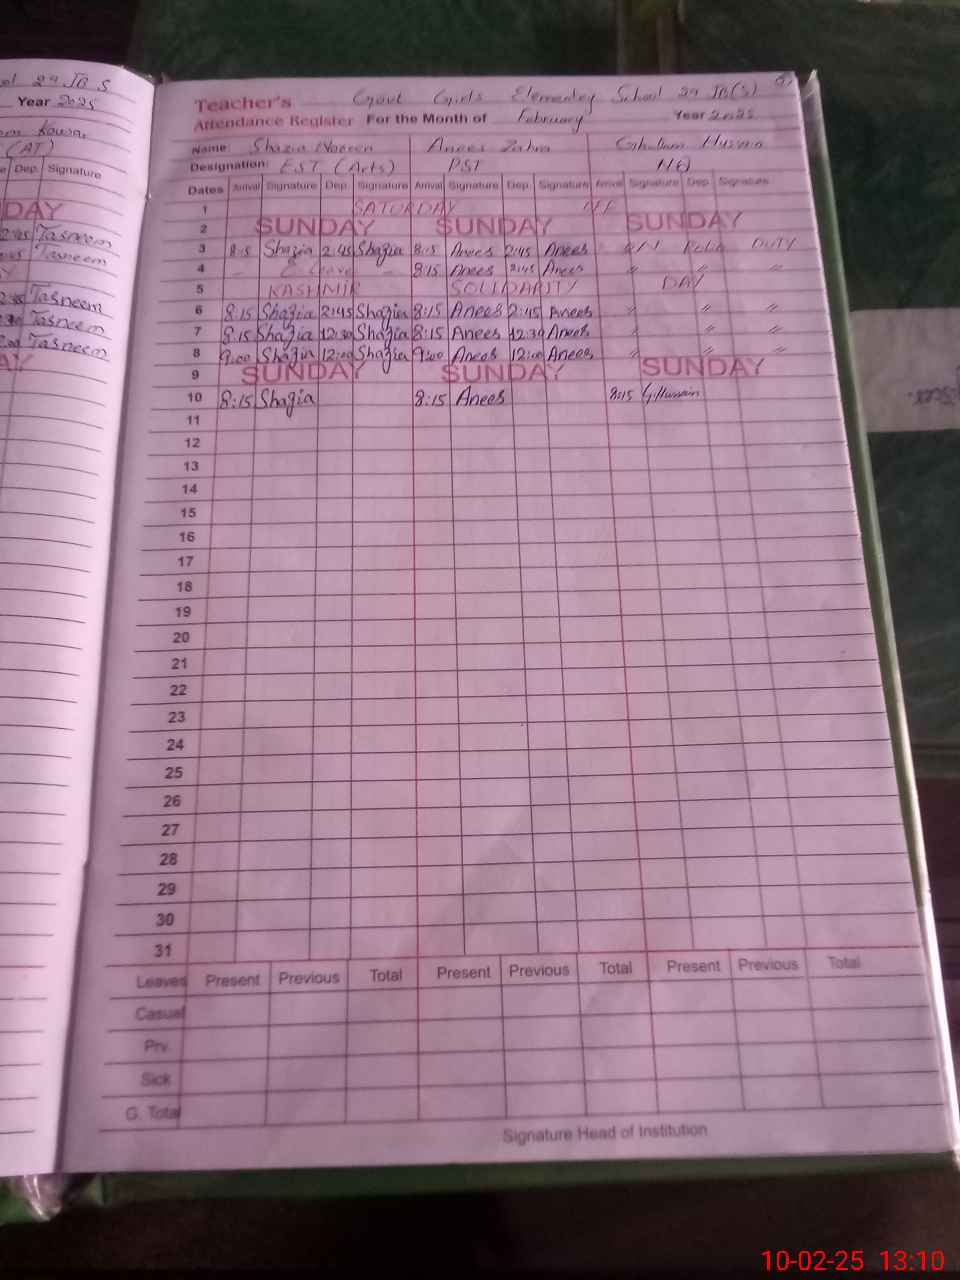 29 JB S
Year 2025
Kousar
(AT)
Dep. Signature
DAY
2:45 Tasneem
Tasneem
Tasneem
Tasneem
Tasneem
AY
Teacher's Govt Girls Elementary School 29 JB(S)
Attendance Register For the Month of February Year 2025
Name: Shazia Noreen Anees Zahra Ghulam Husain
Designation: EST (Arts) PST NQ
Dates Arrival Signature Dep. Signature Arrival Signature Dep. Signature Arrival Signature Dep. Signature
1 SATURDAY OFF
2 SUNDAY SUNDAY SUNDAY
3 8:15 Shazia 2:45 Shazia 8:15 Anees 2:45 Anees ON Polio DUTY
4 Leave 8:15 Anees 2:45 Anees " " "
5 KASHMIR SOLIDARITY DAY
6 8:15 Shazia 2:45 Shazia 8:15 Anees 2:45 Anees " " "
7 8:15 Shazia 12:30 Shazia 8:15 Anees 12:30 Anees " " "
8 9:00 Shazia 12:00 Shazia 9:00 Anees 12:00 Anees " " "
9 SUNDAY SUNDAY SUNDAY
10 8:15 Shazia 8:15 Anees 8:15 G.Hussain
11
12
13
14
15
16
17
18
19
20
21
22
23
24
25
26
27
28
29
30
31
Leaves Present Previous Total Present Previous Total Present Previous Total
Casual
Prv.
Sick
G. Total
Signature Head of Institution
10-02-25 13:10